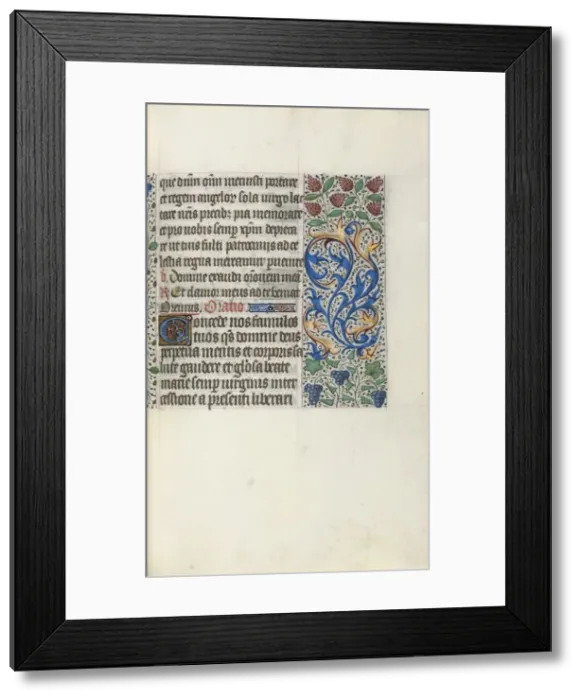 que dnm oim meruisti portare
et regem angelor sola virgo lac
tare nris precib; pia memorare
et pro nobis semp xpm depreca
re ut tuis fulti patrocinijs ad ce
lestia regna mereamur puenire
V. Domine exaudi oronem mea
R Et clamor meus ad te veniat
Oremus. Oratio.
Concede nos famulos
tuos qs domine deus
perpetua mentis et corporis sa
nite gaudere et glosa beate
marie semp virginis inter
cessione a presenti liberari